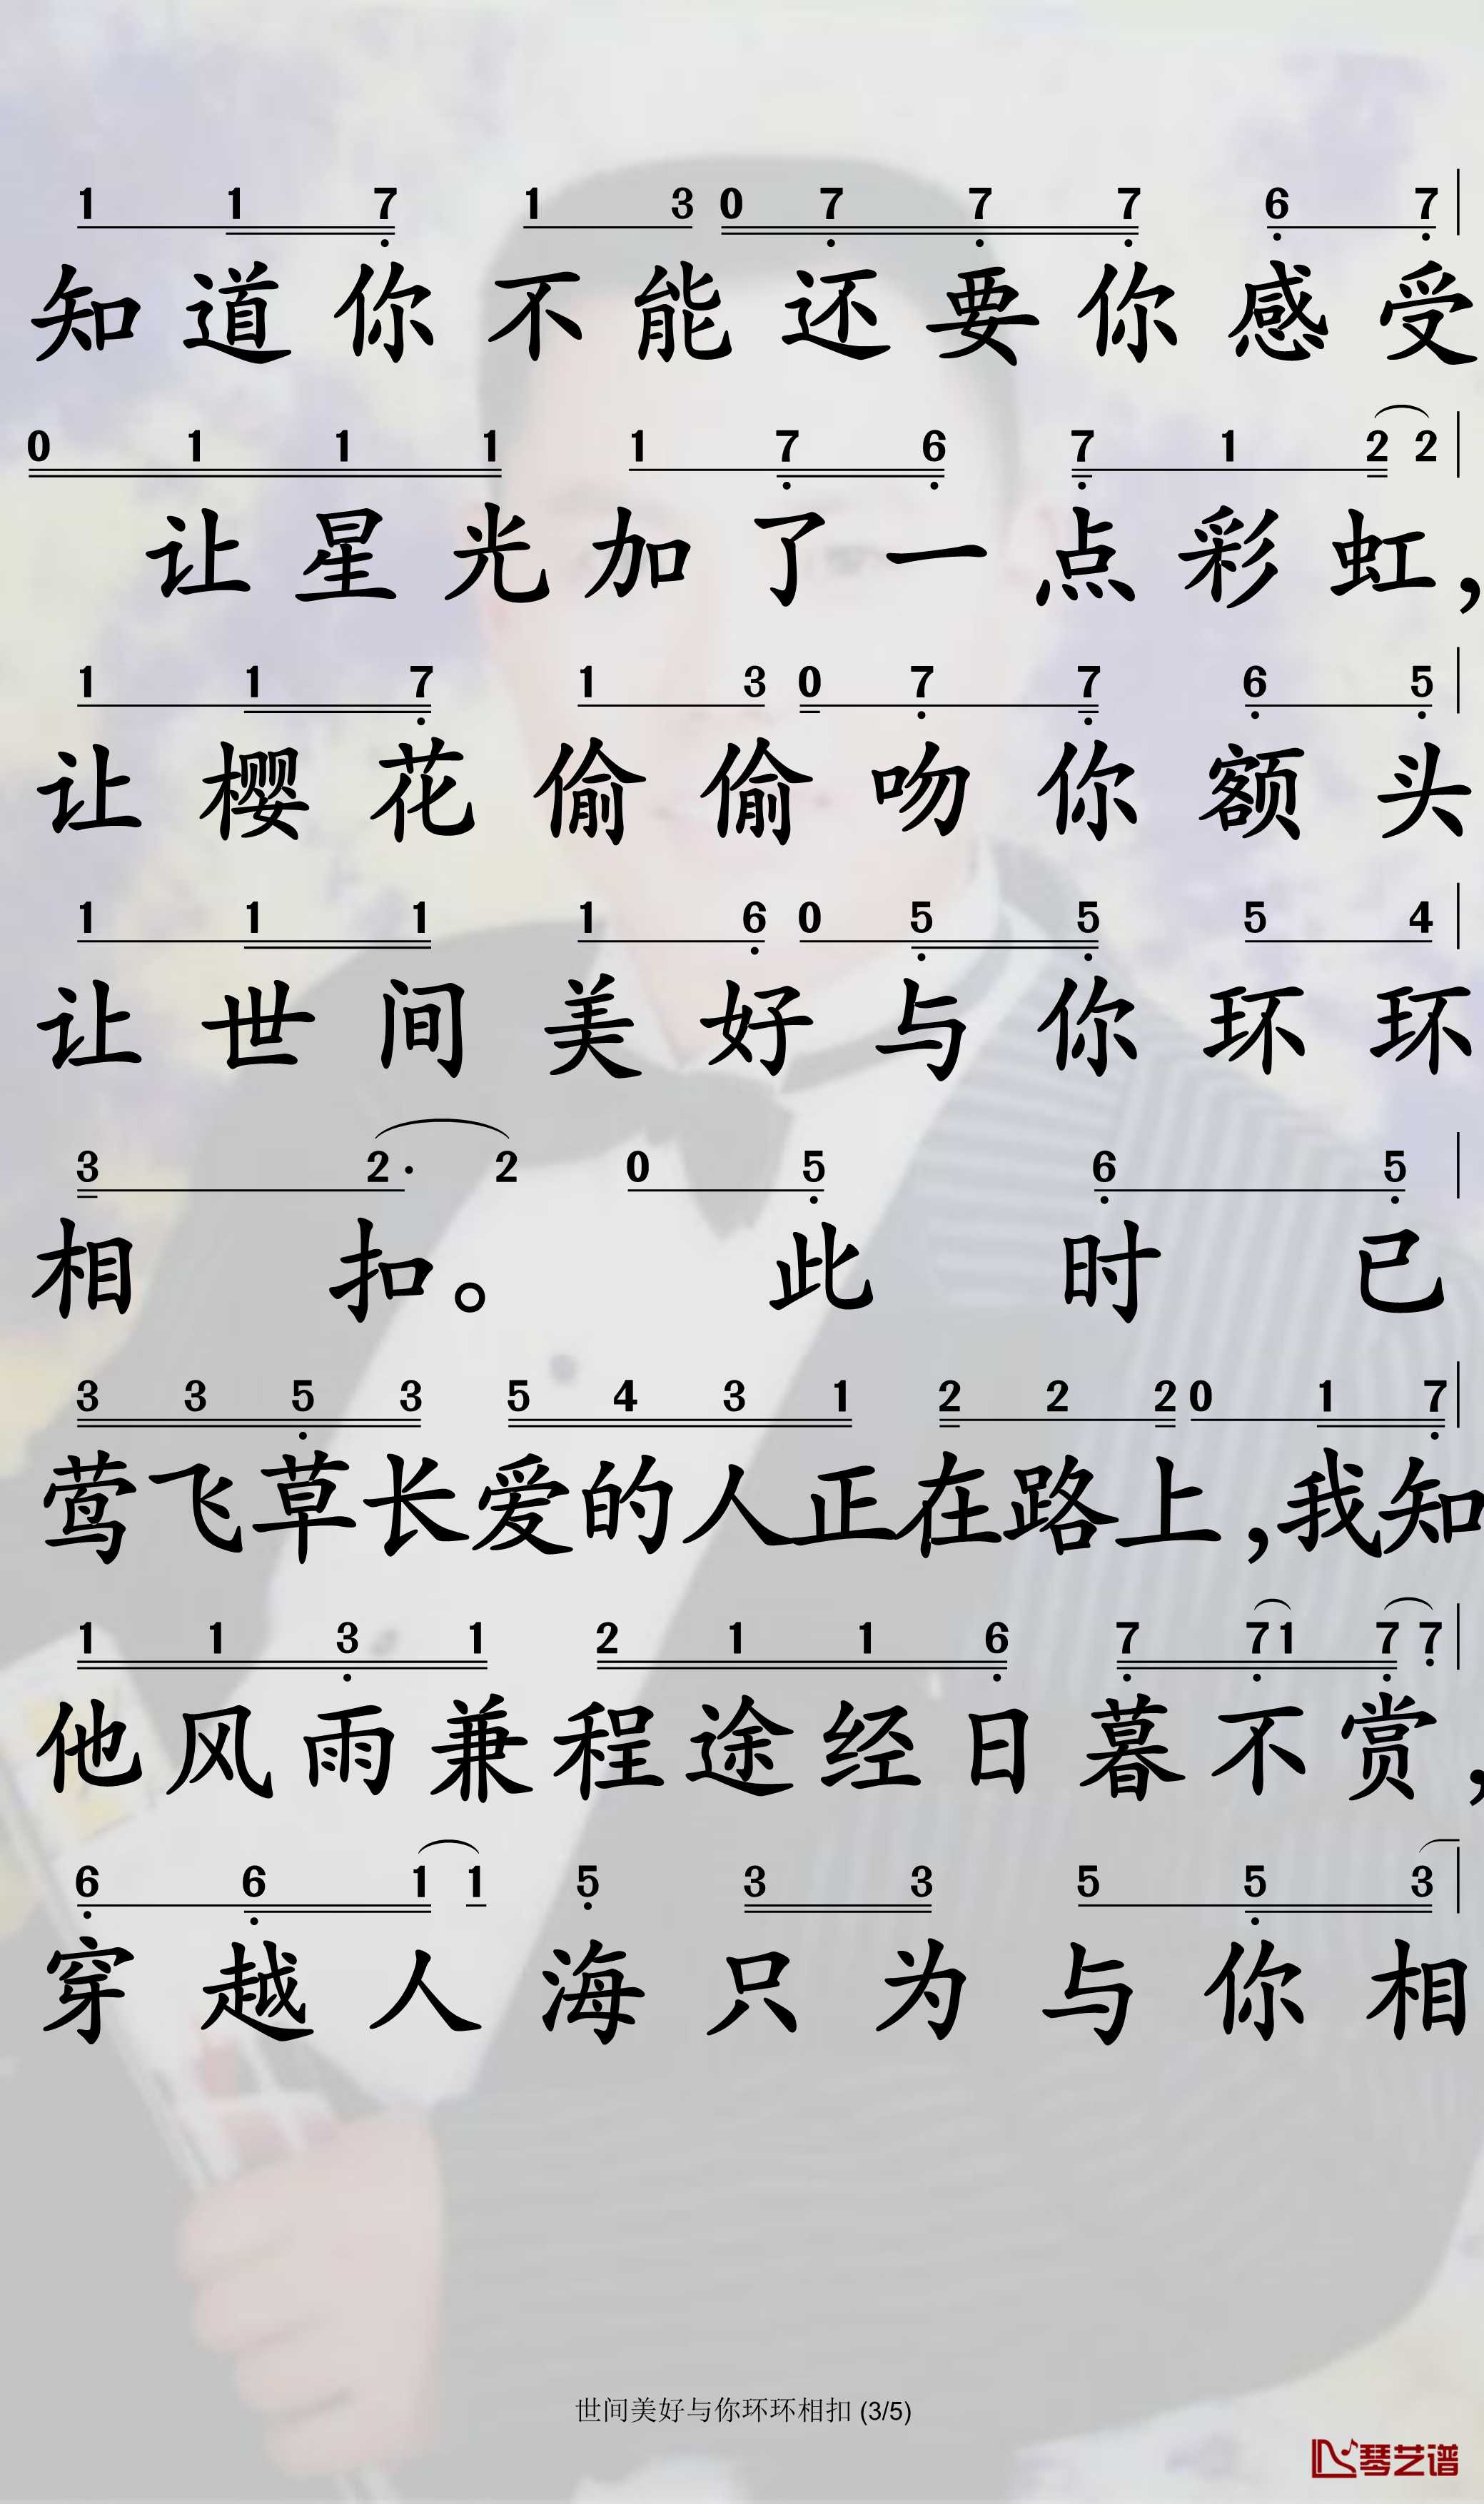 1 1 7 1 3 0 7 7 7 6 7
知道你不能还要你感受
0 1 1 1 1 7 6 7 1 2 2
让星光加了一点彩虹，
1 1 7 1 3 0 7 7 6 5
让樱花偷偷吻你额头
1 1 1 1 6 0 5 5 5 4
让世间美好与你环环
3 2· 2 0 5 6 5
相扣。 此时已
3 3 5 3 5 4 3 1 2 2 2 0 1 7
莺飞草长爱的人正在路上，我知
1 1 3 1 2 1 1 6 7 7 1 7 7
他风雨兼程途经日暮不赏，
6 6 1 1 5 3 3 5 5 3
穿越人海只为与你相
世间美好与你环环相扣 (3/5)
琴艺谱